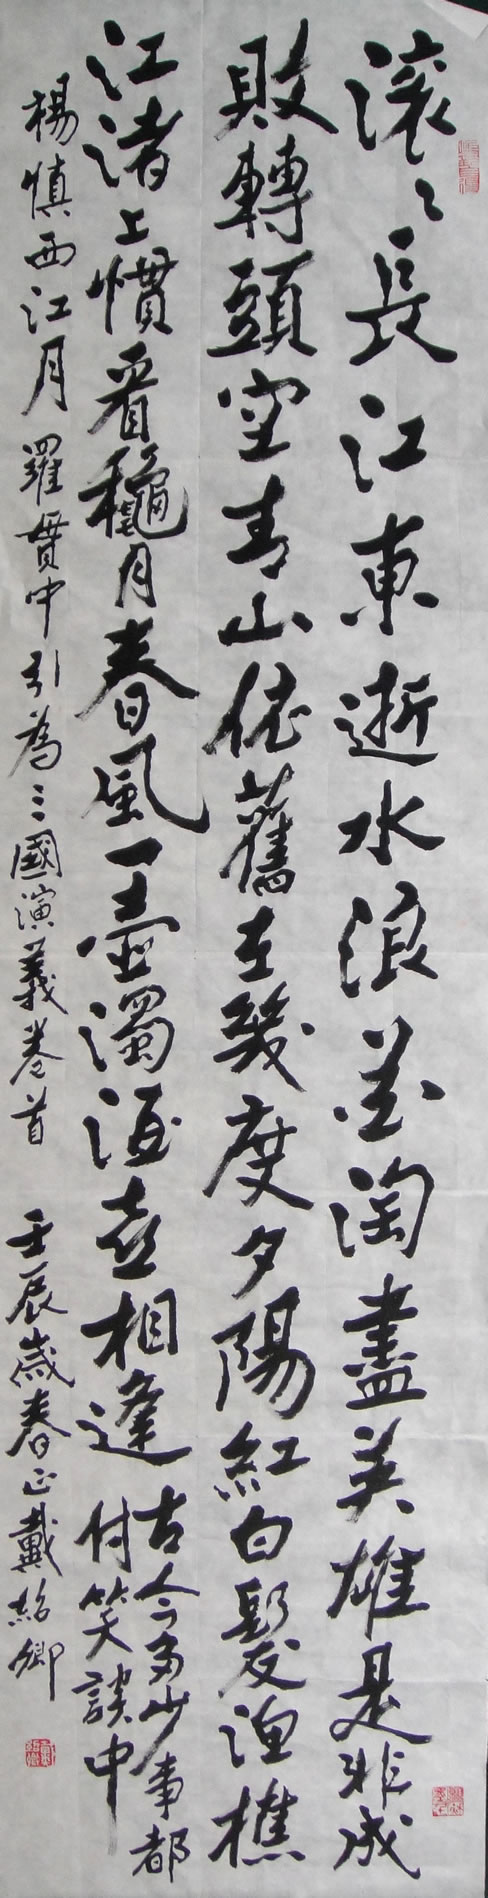 滚〻長江東逝水浪花淘盡英雄是非成
敗轉頭空青山依舊在幾度夕陽紅白髮漁樵
江渚上慣看龝月春風一壺濁酒喜相逢
古今多少事都
付笑談中
楊慎西江月羅貫中引為三國演義卷首 壬辰歲春正戴紹卿